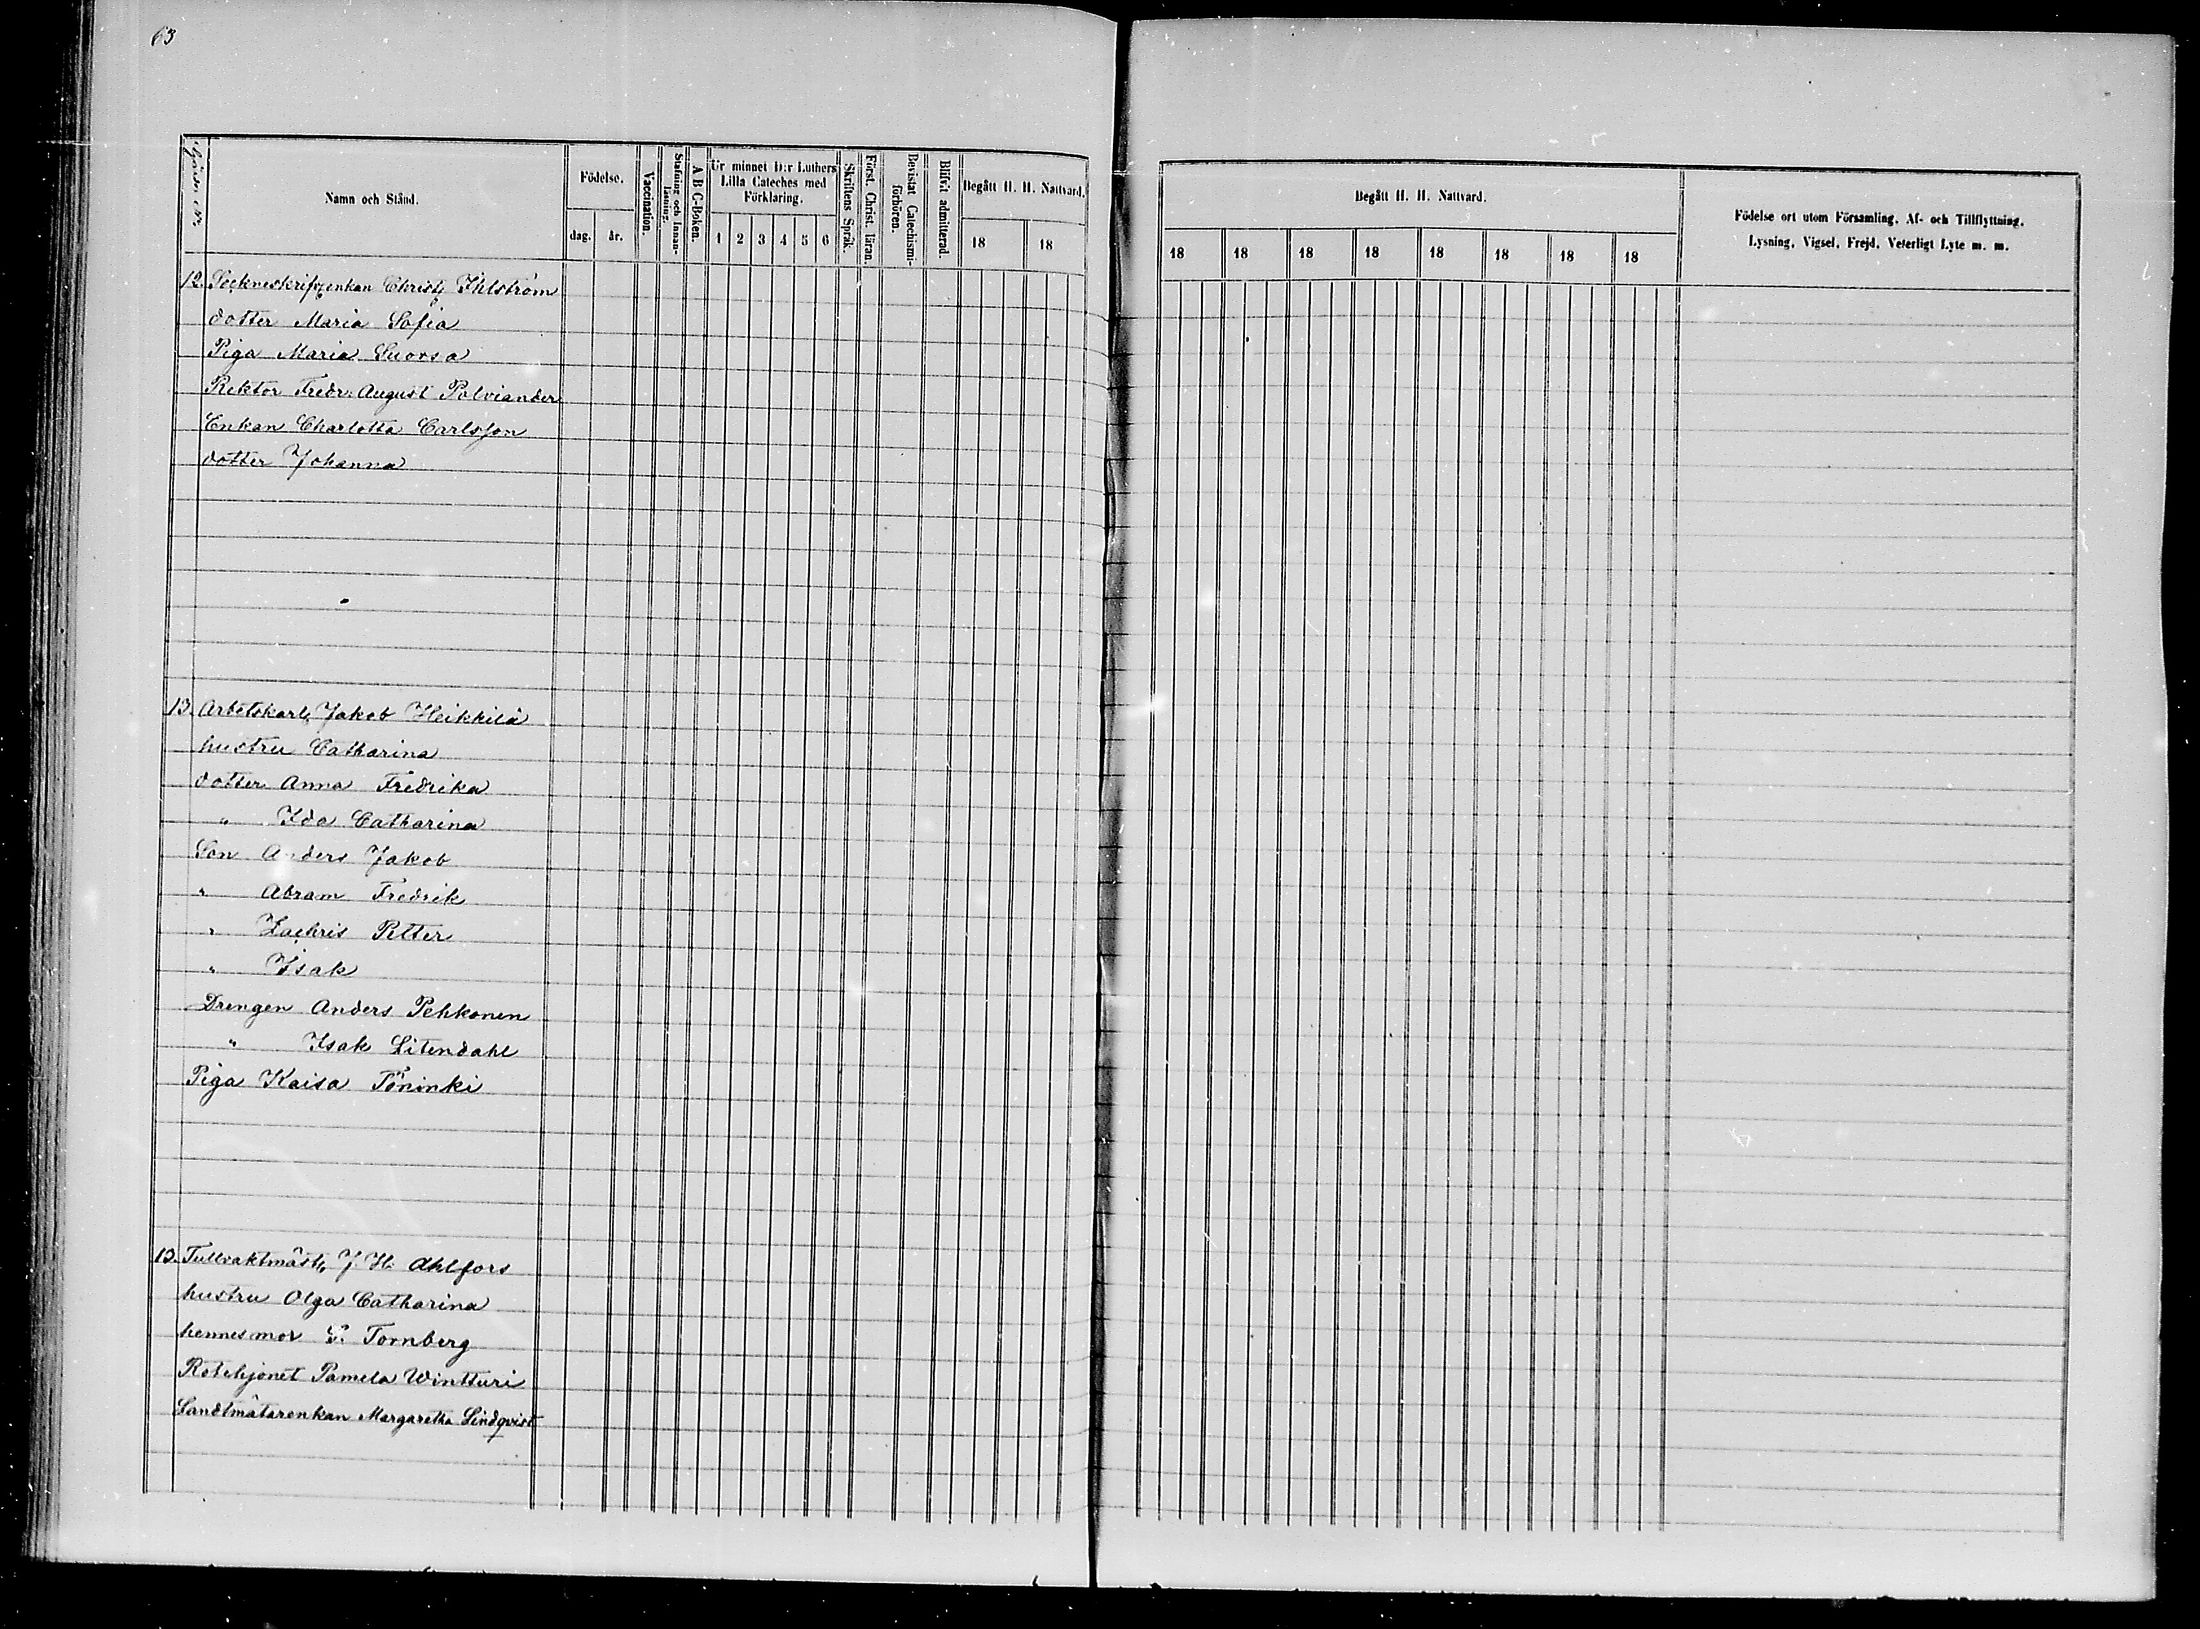 63
Gårds Nr.
Namn och Stånd.
Födelse.
dag. år.
Vaccination.
Stafning och Innan-läsning.
A B C-Boken.
Ur minnet D:r Luthers
Lilla Cateches med
Förklaring.
1 2 3 4 5 6
Skriftens Språk.
Först. Christ. läran.
Bevistat Catechismi-förhören.
Blifvit admitterad.
Begått H. H. Nattvard.
18 18
Begått H. H. Nattvard.
18 18 18 18 18 18 18 18
Födelse ort utom Församling, Af- och Tillflyttning,
Lysning, Vigsel, Frejd, Veterligt Lyte m. m.
12. Sockneskrifv:enkan Christ: Ihlström
dotter Maria Sofia
Piga Maria Suorsa
Rektor Fredr: August Polviander
Enkan Charlotta Carlsson
dotter Johanna
13. Arbetskarl: Jakob Heikkilä
hustru Catharina
dotter Anna Fredrika
" Ida Catharina
Son Anders Jakob
" Abram Fredrik
" Zachris Petter
" Isak
Drengen Anders Pehkonen
" Isak Litendahl
Piga Kaisa Törinki
13. Tullvaktmäst: J. H. Ahlfors
hustru Olga Catharina
hennes mor S. Tornberg
Rotehjonet Pamela Wintturi
Landtmätarenkan Margaretha Lindqvist